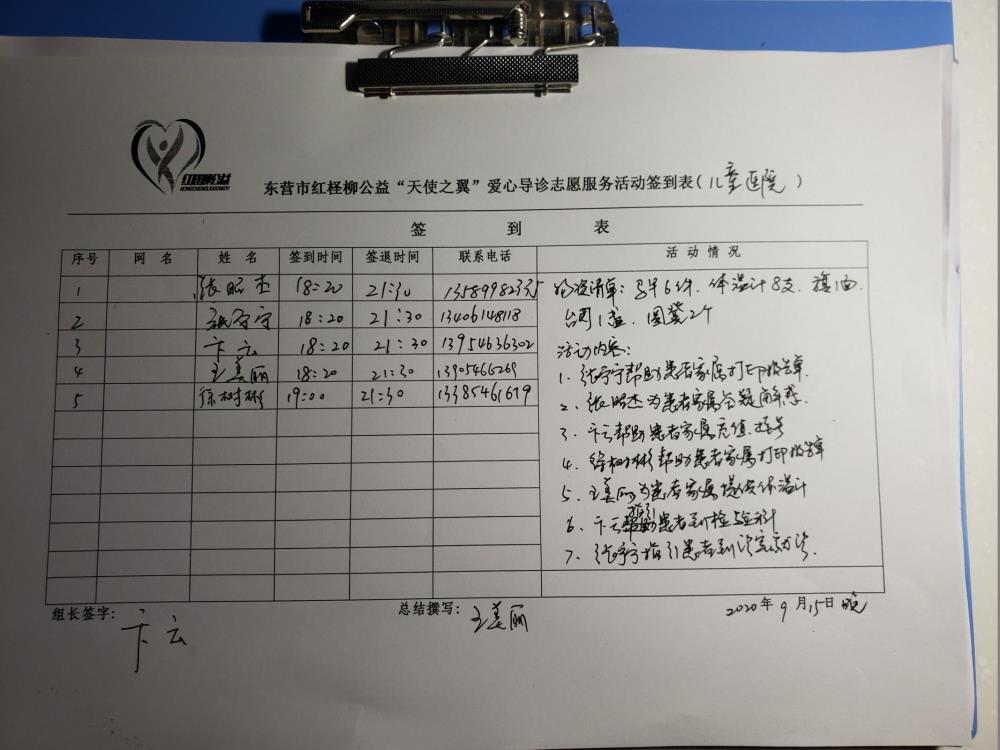 红柽柳公益
HONGCHENGLIUGONGYI
东营市红柽柳公益“天使之翼”爱心导诊志愿服务活动签到表(儿童医院)
签 到 表
序号 网 名 姓 名 签到时间 签退时间 联系电话 活 动 情 况
1 张昭杰 18:20 21:30 物资清单:马甲6件、体温计8支、旗1面、
2 张宇宁 18:20 21:30 13406148118 台同1盖、圆凳2个
3 卞云 18:20 21:30 13954636302 活动内容:
4 王美丽 18:20 21:30 13905466269 1、张宇宁帮助患者家属打印报告单.
5 徐树彬 19:00 21:30 13385461679 2、张昭杰为患者家属答疑解惑.
3、卞云帮助患者家属充值、挂号
4、徐树彬帮助患者家属打印报告单
5、王美丽为患者家属递发体温计
6、卞云指引患者到检验科
7、张宇宁指引患者到诊室就诊.
组长签字:卞云 总结撰写:王美丽 2020年9月15日晚